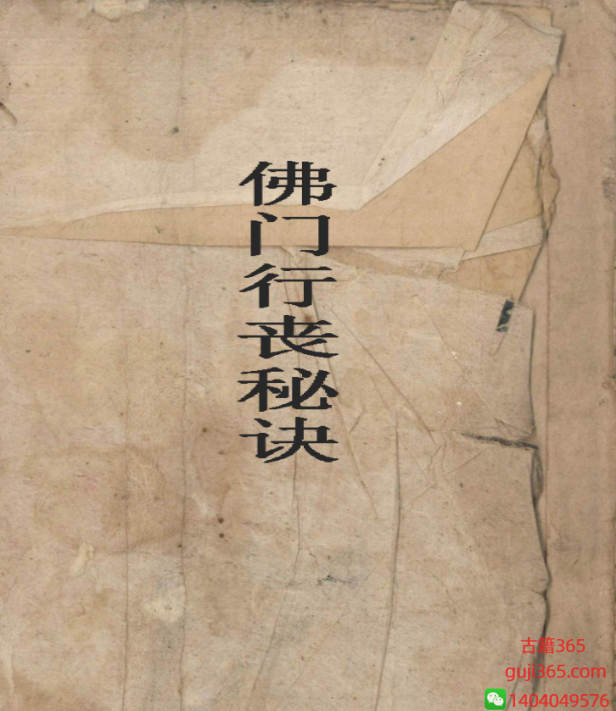 佛门行丧秘诀
古籍365
guji365.com
1404049576